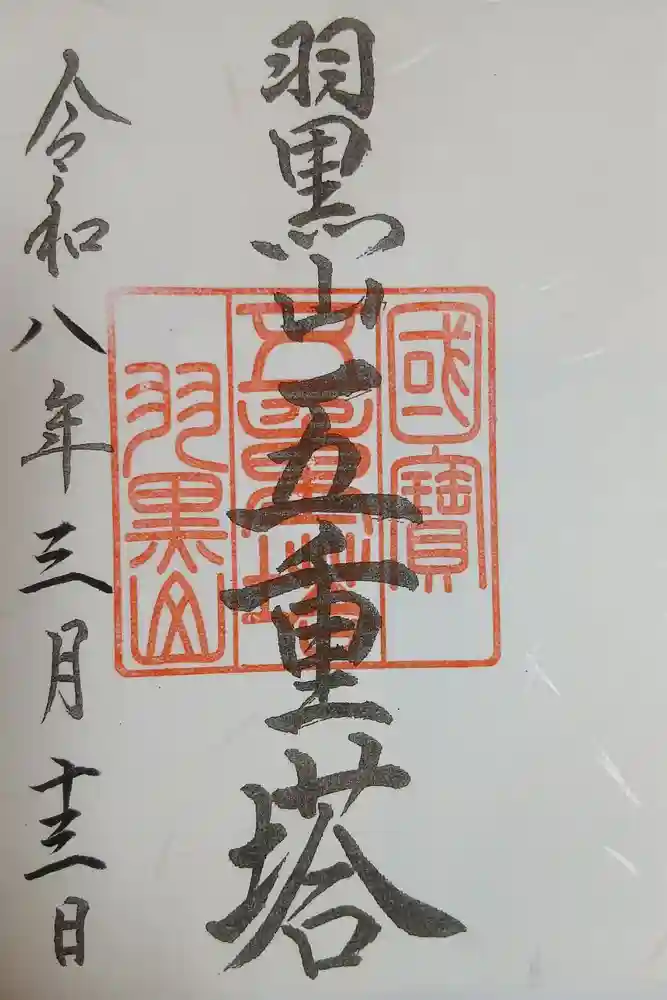 羽黒山五重塔
國寶
五重塔
羽黒山
令和八年三月十三日